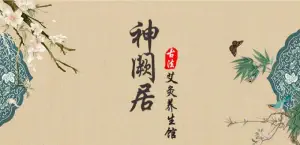 神阙居
古法
艾灸养生馆